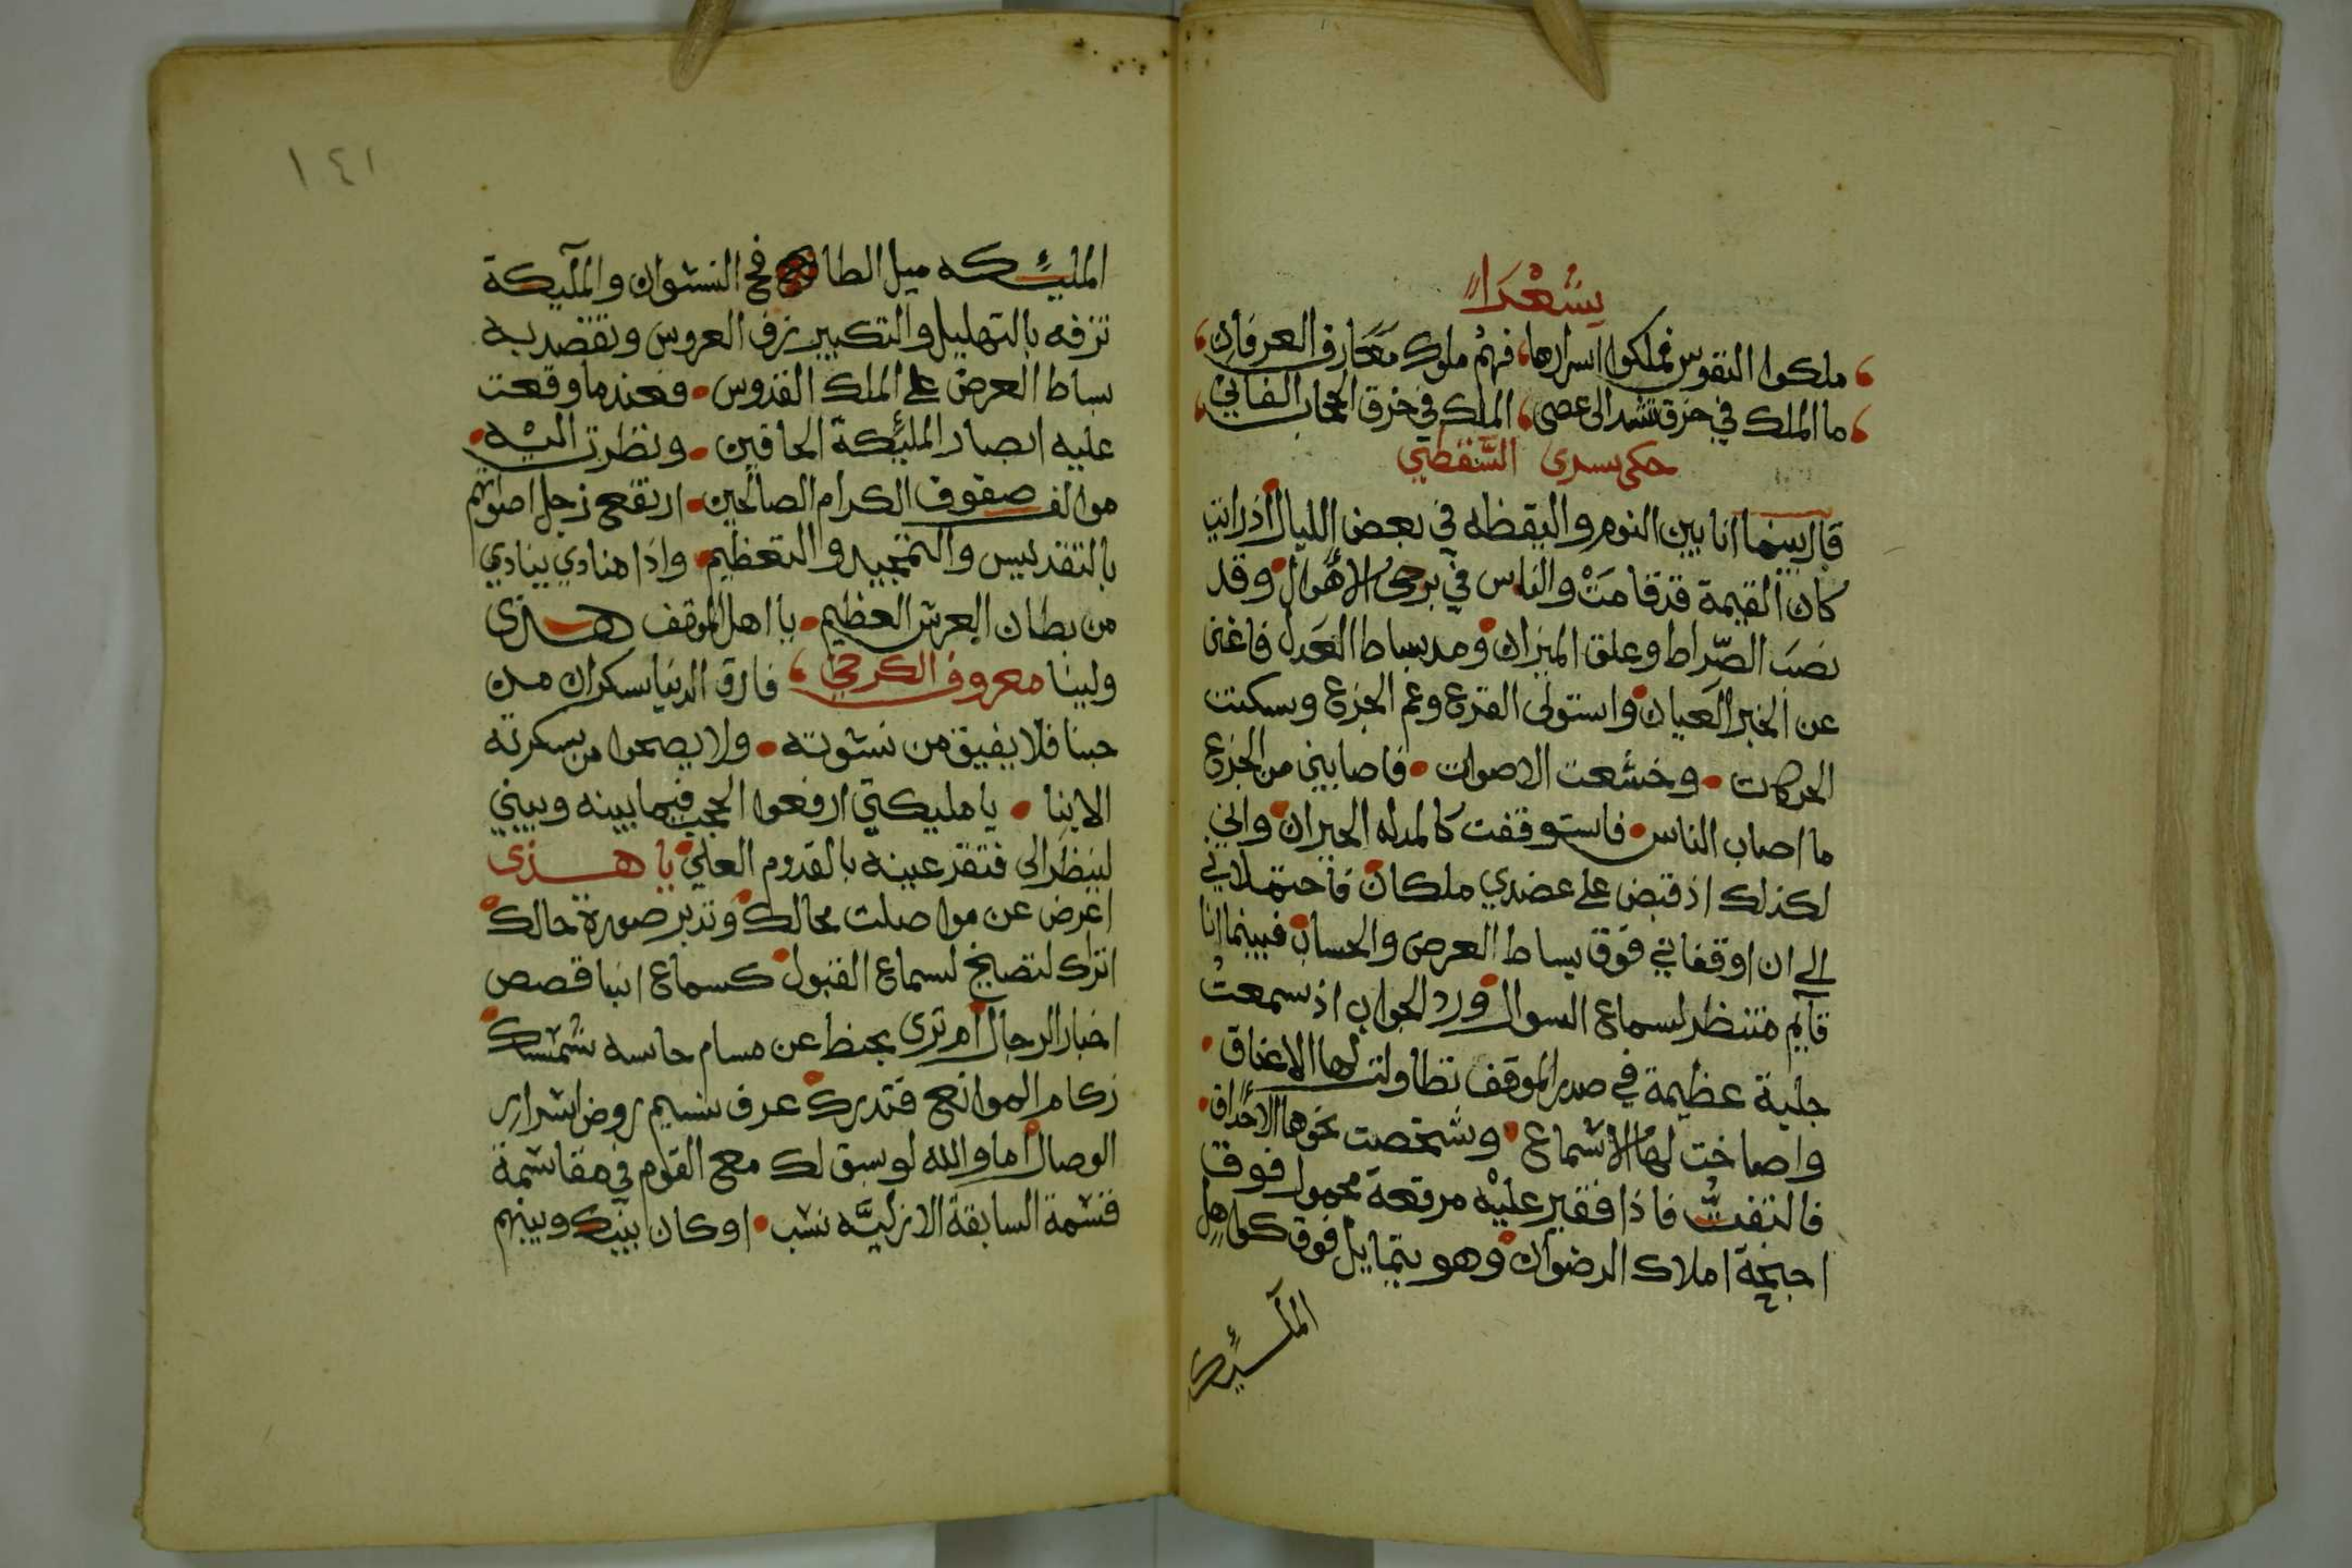 شعرا
ملكوا النفوس فملكوا اسرارها فهم ملوك معارف العرفان
ما الملك في خرق تشد الى عصى الملك في خرق الحجاب الفاني
حكى سرى السقطي
قال بينما انا بين النوم واليقظه في بعض الليال اذ رايت
كان القيمة قد قامت والناس في برحي الاهوال وقد
نصب الصراط وعلق الميزان ومد بساط العدل فاغنى
عن الخبر العيان واستولى الفزع وعم الجزع وسكنت
الحركات وخشعت الاصوات فاصابني من الجزع
ما اصاب الناس فاستوقفت كالمدله الحيران واني
لكذلك اذ قبض على عضدي ملكان فاحتملاني
الى ان اوقفاني فوق بساط العرض والحساب فبينما انا
قايم منتظر لسماع السوال ورد الجواب اذ سمعت
جلبة عظيمة في صدر الموقف تطاولت لها الاعناق
واصاخت لها الاسماع وشخصت نحوها الاحداق
فالتفت فاذا فقير عليه مرقعة محمول فوق
اجنحة املاك الرضوان وهو يتمايل فوق كواهل
الملئكة
١٤١
المليكه ميل الطافح النشوان والمليكة
تزفه بالتهليل والتكبير زف العروس وتقصد به
بساط العرض على الملك القدوس فعندما وقعت
عليه ابصار المليكة الحافين ونظرت اليه
موالف صفوف الكرام الصالحين ارتفع زجل اصواتهم
بالتقديس والتمجيد والتعظيم واذا منادي ينادي
من بطان العرش العظيم يا اهل الموقف هذى
ولينا معروف الكرخي فارق الدنيا سكران من
حبنا فلا يفيق من نشوته ولا يصحوا من سكرته
الا بنا يا مليكتي ارفعوا الحجب فيما بينه وبيني
لينظر الى فتقر عينه بالقدوم العلي يا هذى
اعرض عن مواصلت محالك وتدبر صورة حالك
اتراك لتصيخ لسماع القبول كسماع انبا قصص
اخبار الرجال ام ترى يحنط عن مسام حاسه شمسك
زكام الموانع فتدرك عرف نسيم روض اسرار
الوصال اما والله لو سبق لك مع القوم في مقاسمة
قسمة السابقة الازليه نسب او كان بينك وبينهم